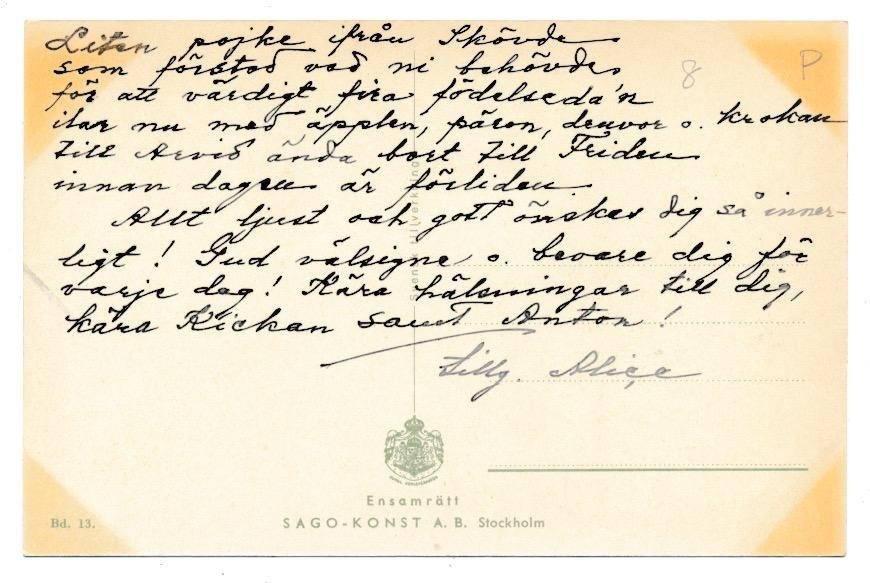 Liten pojke ifrån Skövde
som förstod vad ni behövde
för att värdigt fira födelseda'n
ilar nu med äpplen, päron, druvor o. krokan
till Arvid ända bort till Friden
innan dagen är förliden
Allt ljust och gott önskes dig så inner-
ligt! Gud välsigne o. bevare dig för
varje dag! Kära hälsningar till dig,
kära Kickan samt Anton!
Tillg. Alice
8
P
Svensk tillverkning
Ensamrätt
Bd. 13.
SAGO-KONST A. B. Stockholm